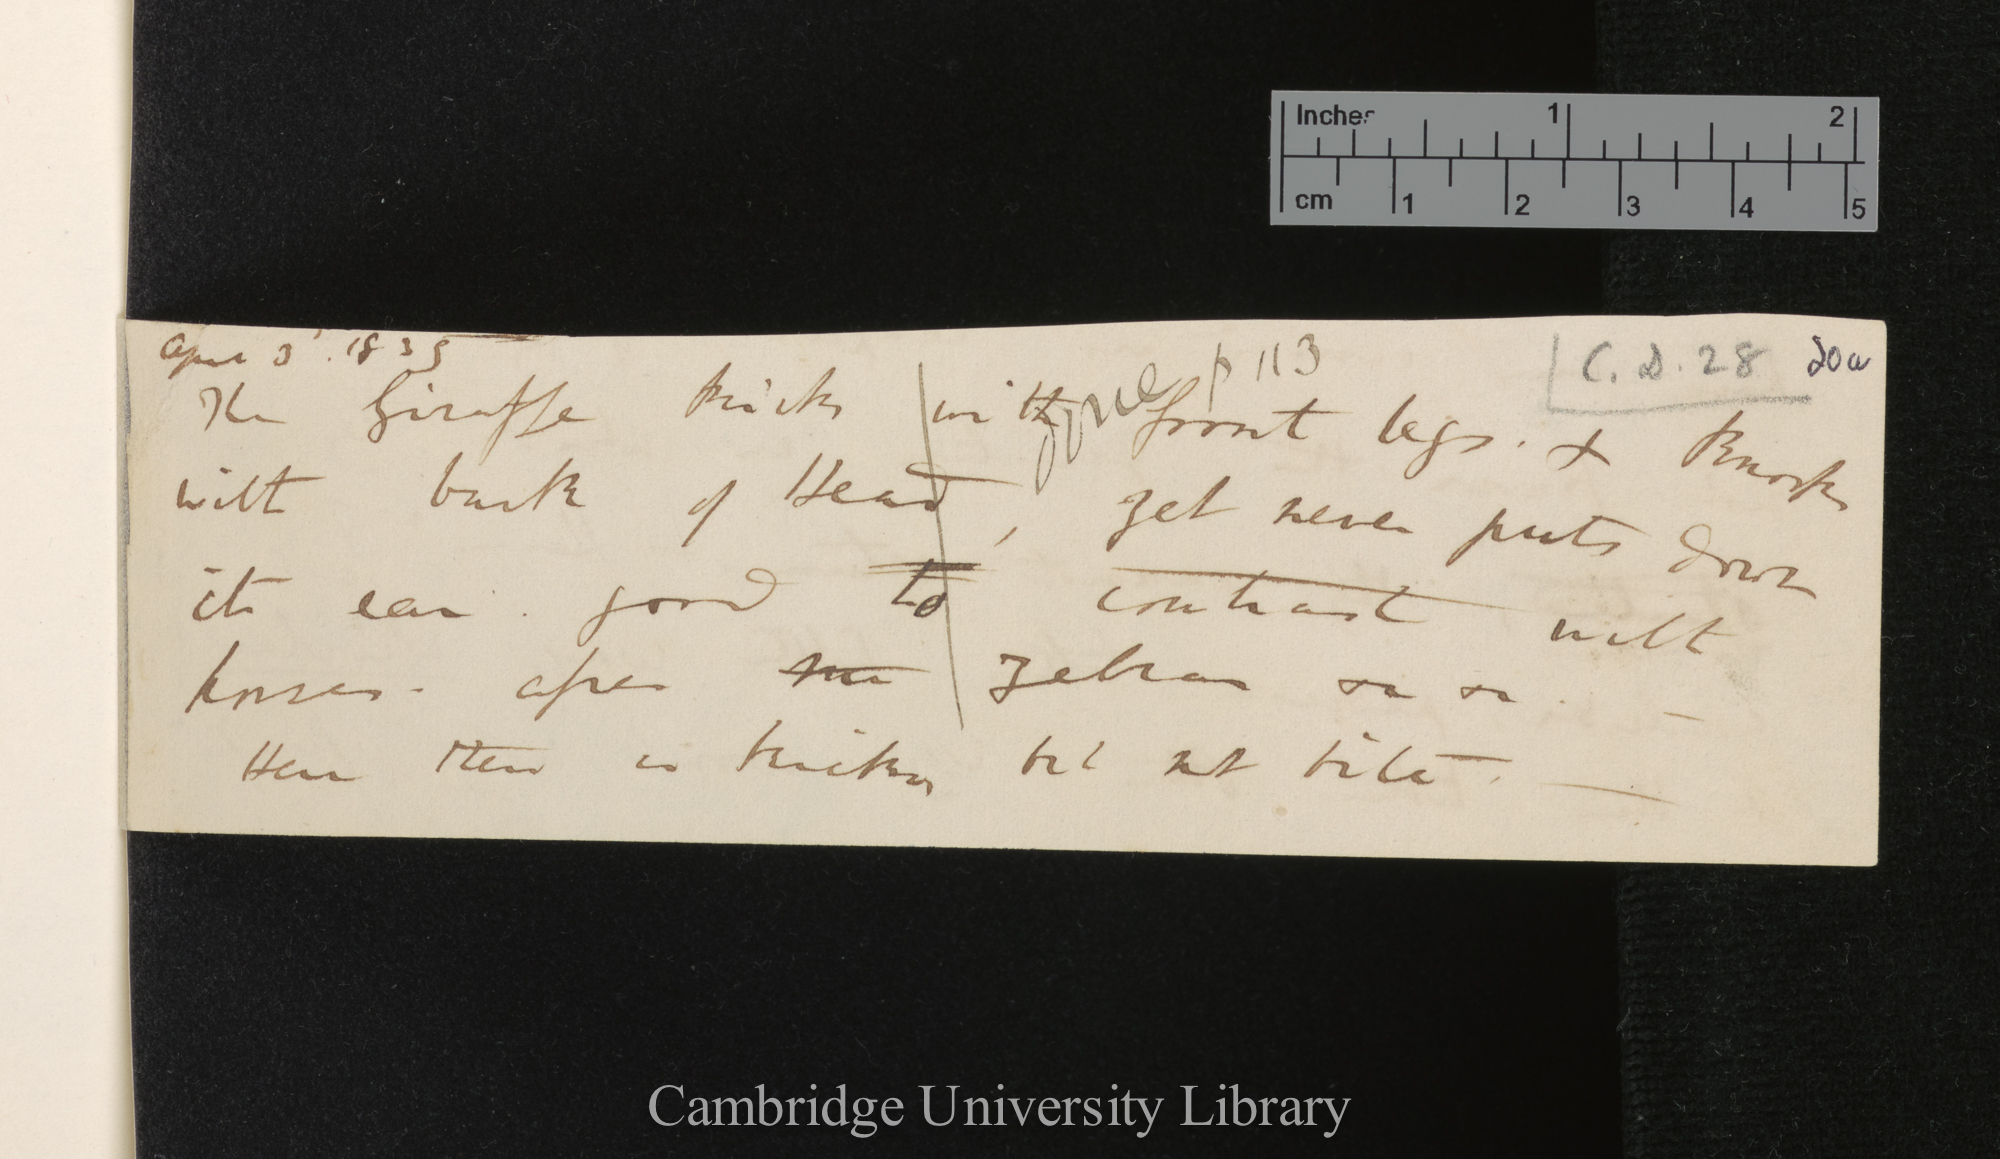 Inches 1 2
cm 1 2 3 4 5
C. D. 28 20a
April 3d. 1839
done p 113
The Giraffe kicks with front legs. & knocks
with back of Head, yet never puts down
its ears. good to contrast with
horses. asses zebras &c &c. —
Here there is kicking but not bite. —
Cambridge University Library